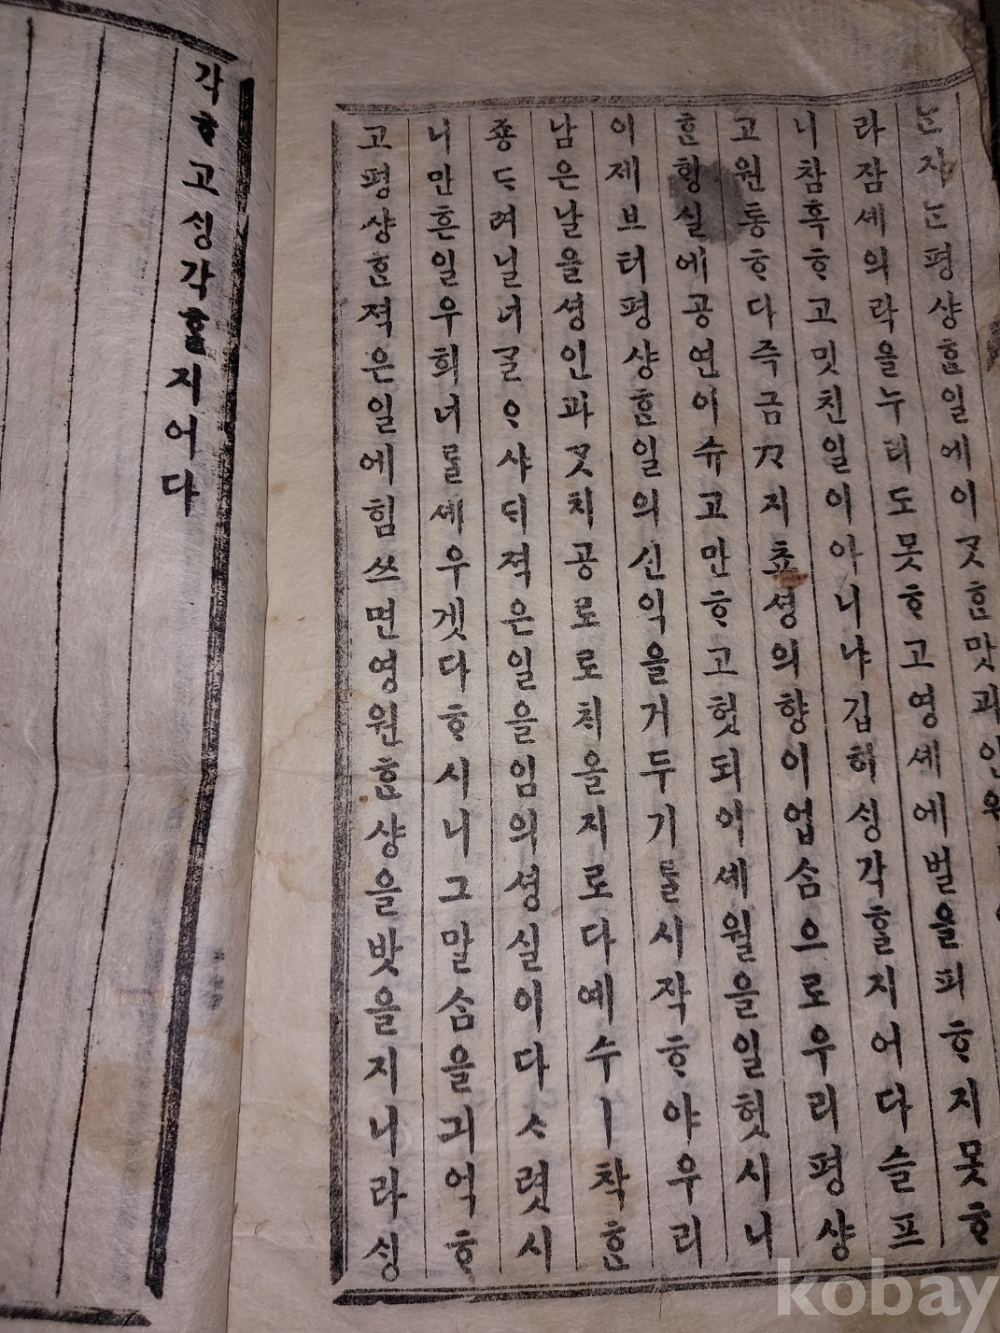 는자는평샹ᄒᆞᆫ일에이ᄀᆞᆺᄒᆞᆫ맛과
라잠셰의락을누리도못ᄒᆞ고영셰에벌을피ᄒᆞ지못ᄒᆞ
니참혹ᄒᆞ고밋친일이아니냐깁히ᄉᆡᆼ각ᄒᆞᆯ지어다슬프
고원통ᄒᆞ다즉금ᄭᆞ지쵸셩의향이업ᄉᆞᆷ으로우리평샹
ᄒᆞᆫᄒᆡᆼ실에공연이슈고만ᄒᆞ고헛되이셰월을일헛시니
이제브터평샹ᄒᆞᆫ일의신익을거두기ᄅᆞᆯ시작ᄒᆞ야우리
남은날을셩인과ᄀᆞᆺ치공로로ᄎᆡ을지로다예수ㅣ착ᄒᆞᆫ
죵ᄃᆞ려닐너ᄀᆞᆯᄋᆞ샤ᄃᆡ젹은일을임의셩실이다ᄉᆞ렷시
니만흔일우희너ᄅᆞᆯ셰우겟다ᄒᆞ시니그말ᄉᆞᆷ을긔억ᄒᆞ
고평샹ᄒᆞᆫ젹은일에힘쓰면영원ᄒᆞᆫ샹을밧을지니라ᄉᆡᆼ
각ᄒᆞ고ᄉᆡᆼ각ᄒᆞᆯ지어다
kobay